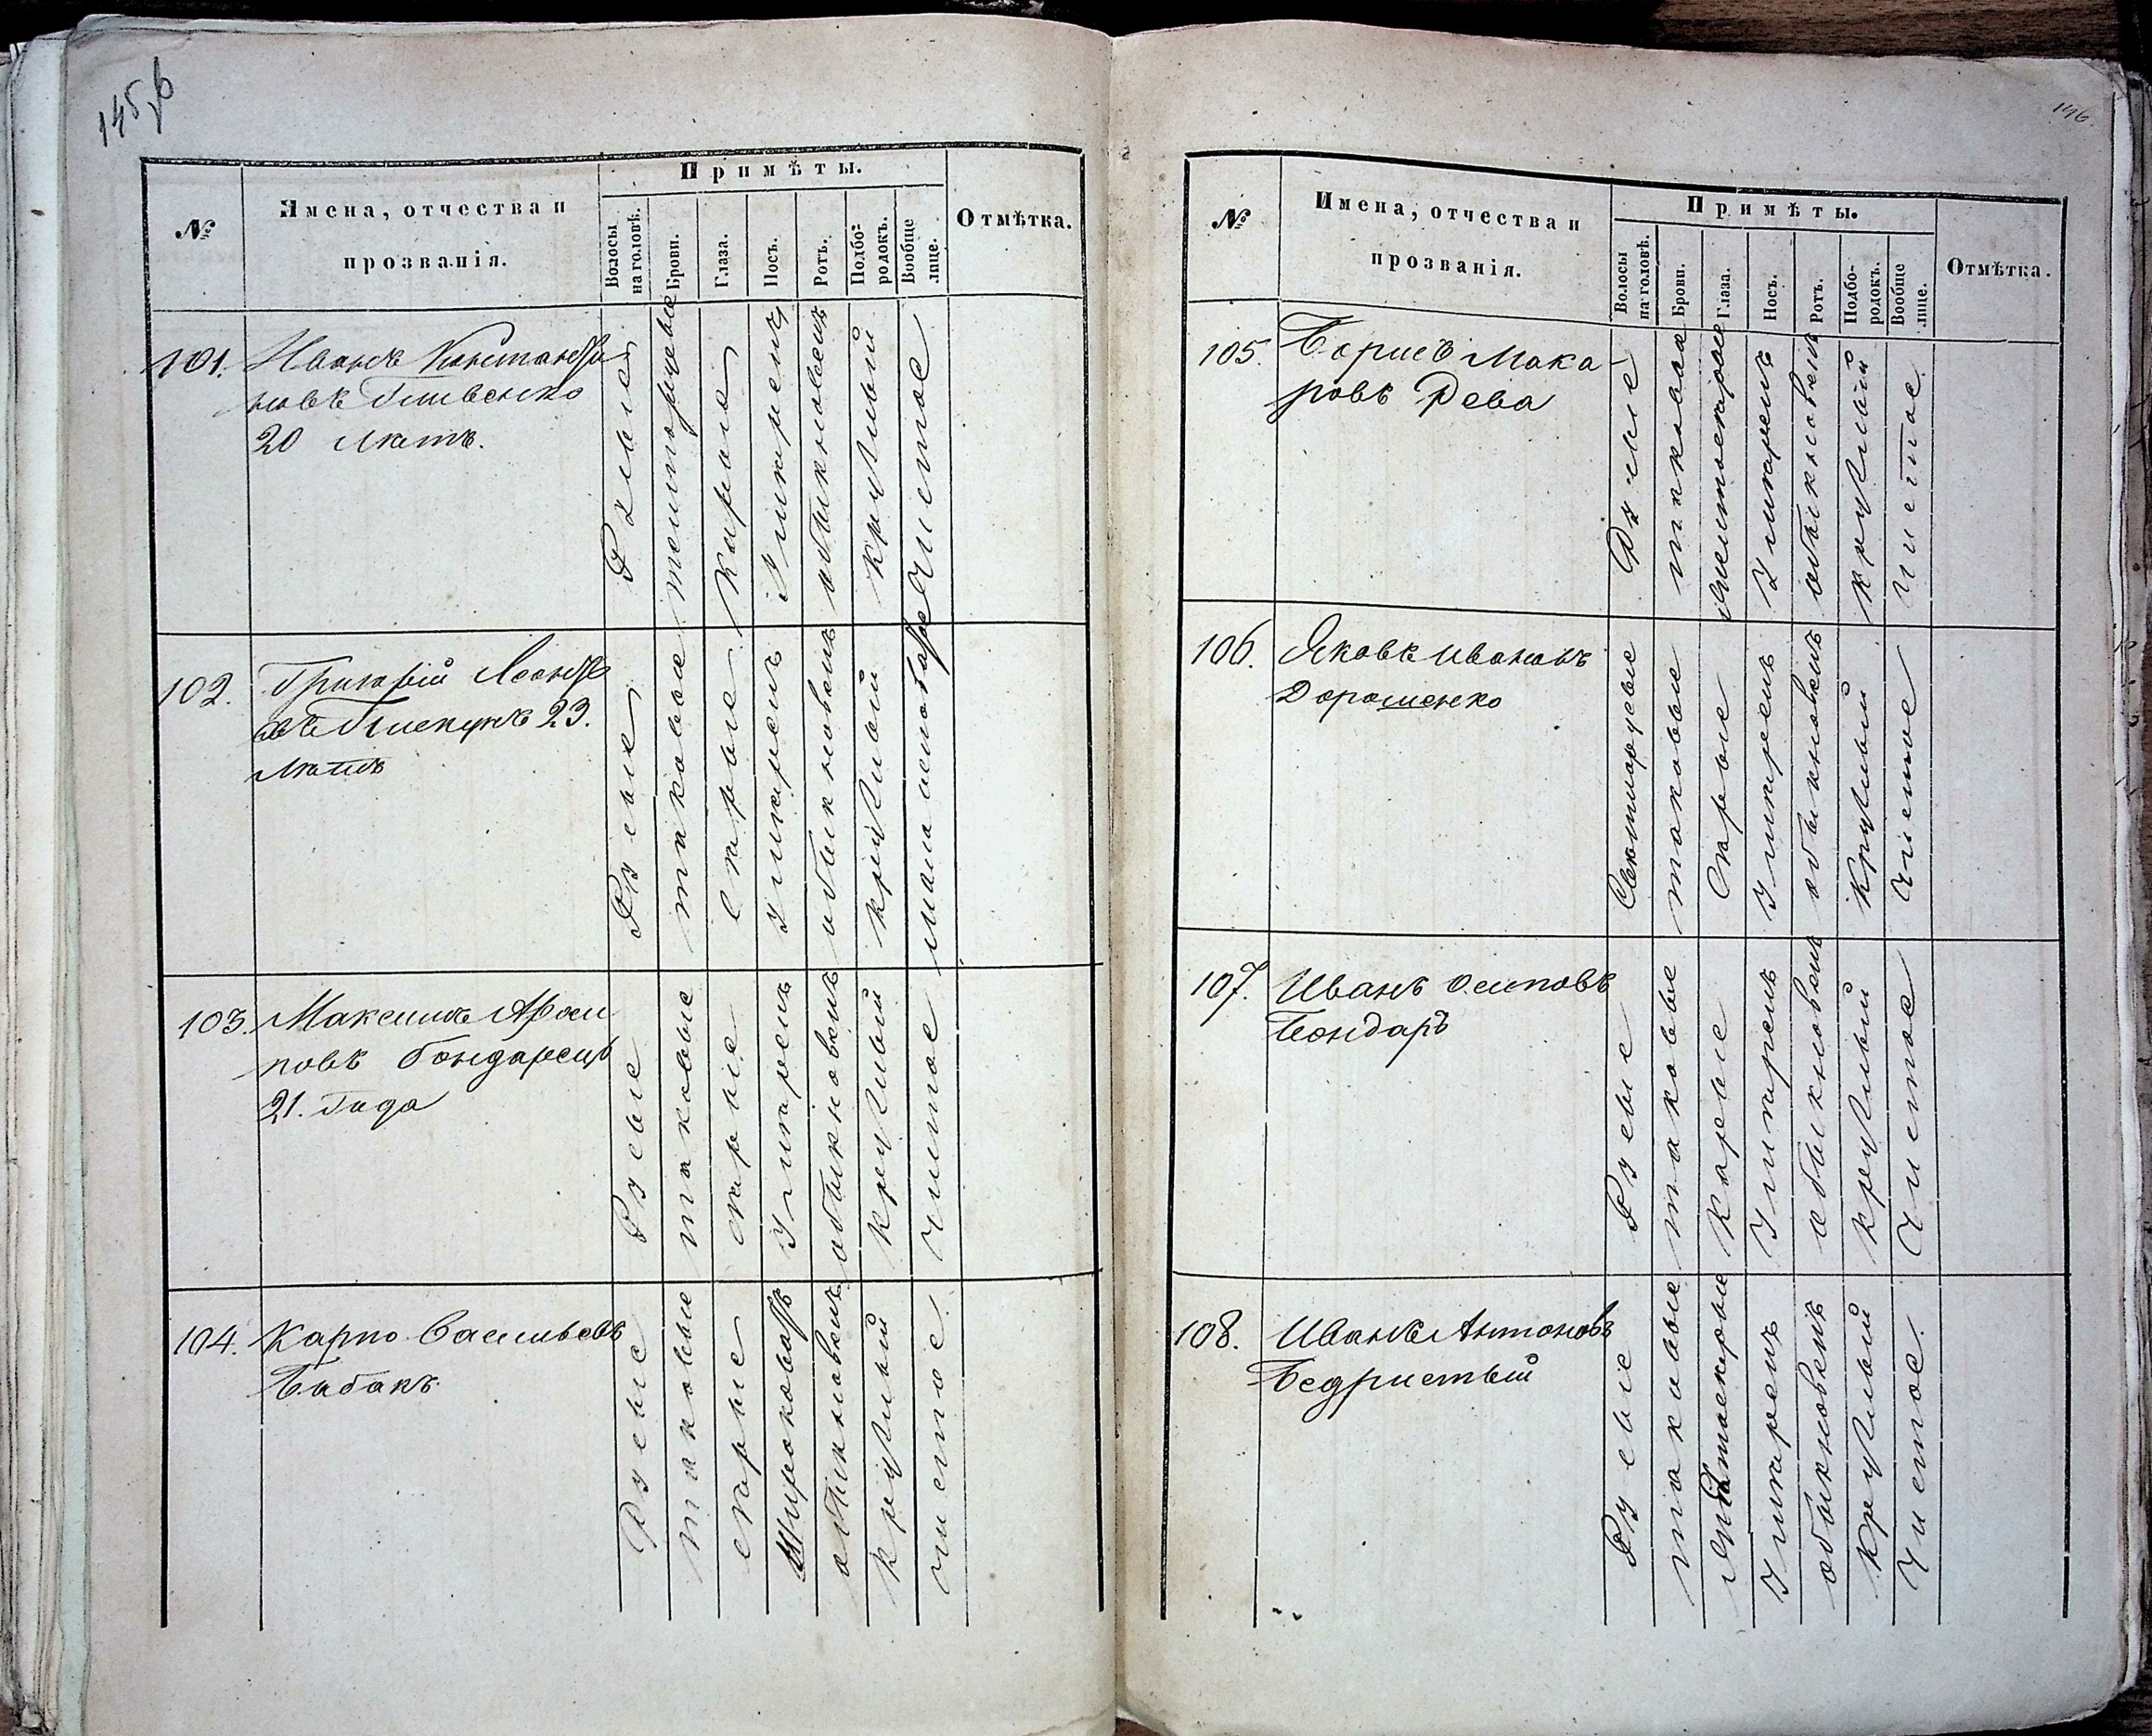 145,б
№
Имена, отчества и
прозванія.
Примѣты.
Волосы
на головѣ.
Брови.
Глаза.
Носъ.
Ротъ.
Подбо-
родокъ.
Вообще
лице.
Отмѣтка.
101.
Иванъ Константи
новъ
20 лѣтъ.
русые
темнорусые
карые
умѣренъ
обыкновенъ
круглый
чистое
102.
Григорій Леонтье
въ 23.
лѣтъ
Русые
таковые
сѣрые
умѣренъ
обыкновенъ
круглый
103.
Максимъ
повъ Бондаренко
21. года
Русые
таковые
сѣрые
умѣренъ
обыкновенъ
круглый
чистое
104.
Карпо Васильевъ
Бабакъ
Русые
таковые
сѣрые
широковатъ
обыкновенъ
круглый
чистое.
146.
№
Имена, отчества и
прозванія.
Примѣты.
Волосы
на головѣ.
Брови.
Глаза.
Носъ.
Ротъ.
Подбо-
родокъ.
Вообще
лице.
Отмѣтка.
105.
Борисъ Мака
ровъ Рева
умѣренъ
обыкновенъ
круглый
чистое
106.
Яковъ Ивановъ
Дорошенко
Свѣтлорусые
таковые
Сѣрые
умѣренъ
обыкновенъ
круглый
чистое
107.
Иванъ Осиповъ
Бондарь
Русые
таковые
Карые
Умѣренъ
обыкновенъ
круглый
Чистое
108.
Иванъ Антоновъ
Бедристый
Русые
таковые
Умѣренъ
обыкновенъ
круглый
Чистое.